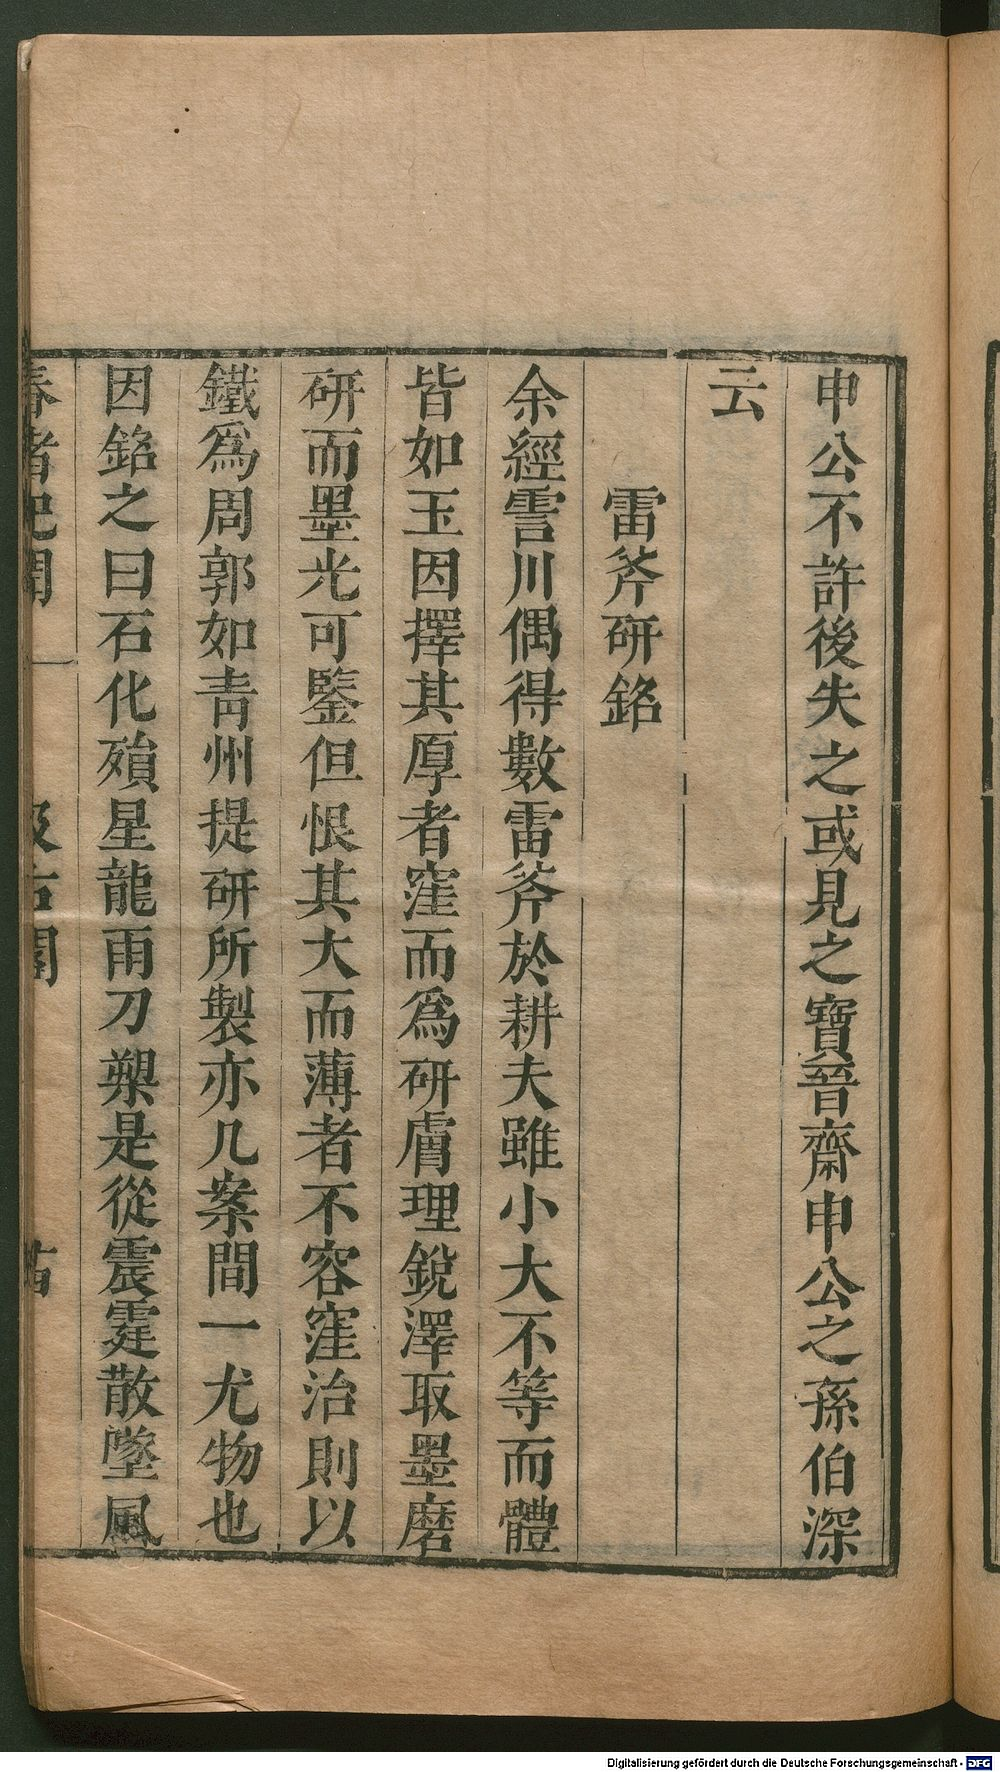 申公不許後失之或見之寶晉齋申公之孫伯深
云
雷斧研銘
余經霅川偶得數雷斧於耕夫雖小大不等而體
皆如玉因擇其厚者窪而爲研膚理銳澤取墨磨
研而墨光可鑒但恨其大而薄者不容窪治則以
鐵爲周郭如青州提研所製亦几案間一尤物也
因銘之曰石化殞星龍雨刀槊是從震霆散墜風
春渚紀聞
汲古閣
Digitalisierung gefördert durch die Deutsche Forschungsgemeinschaft - DFG